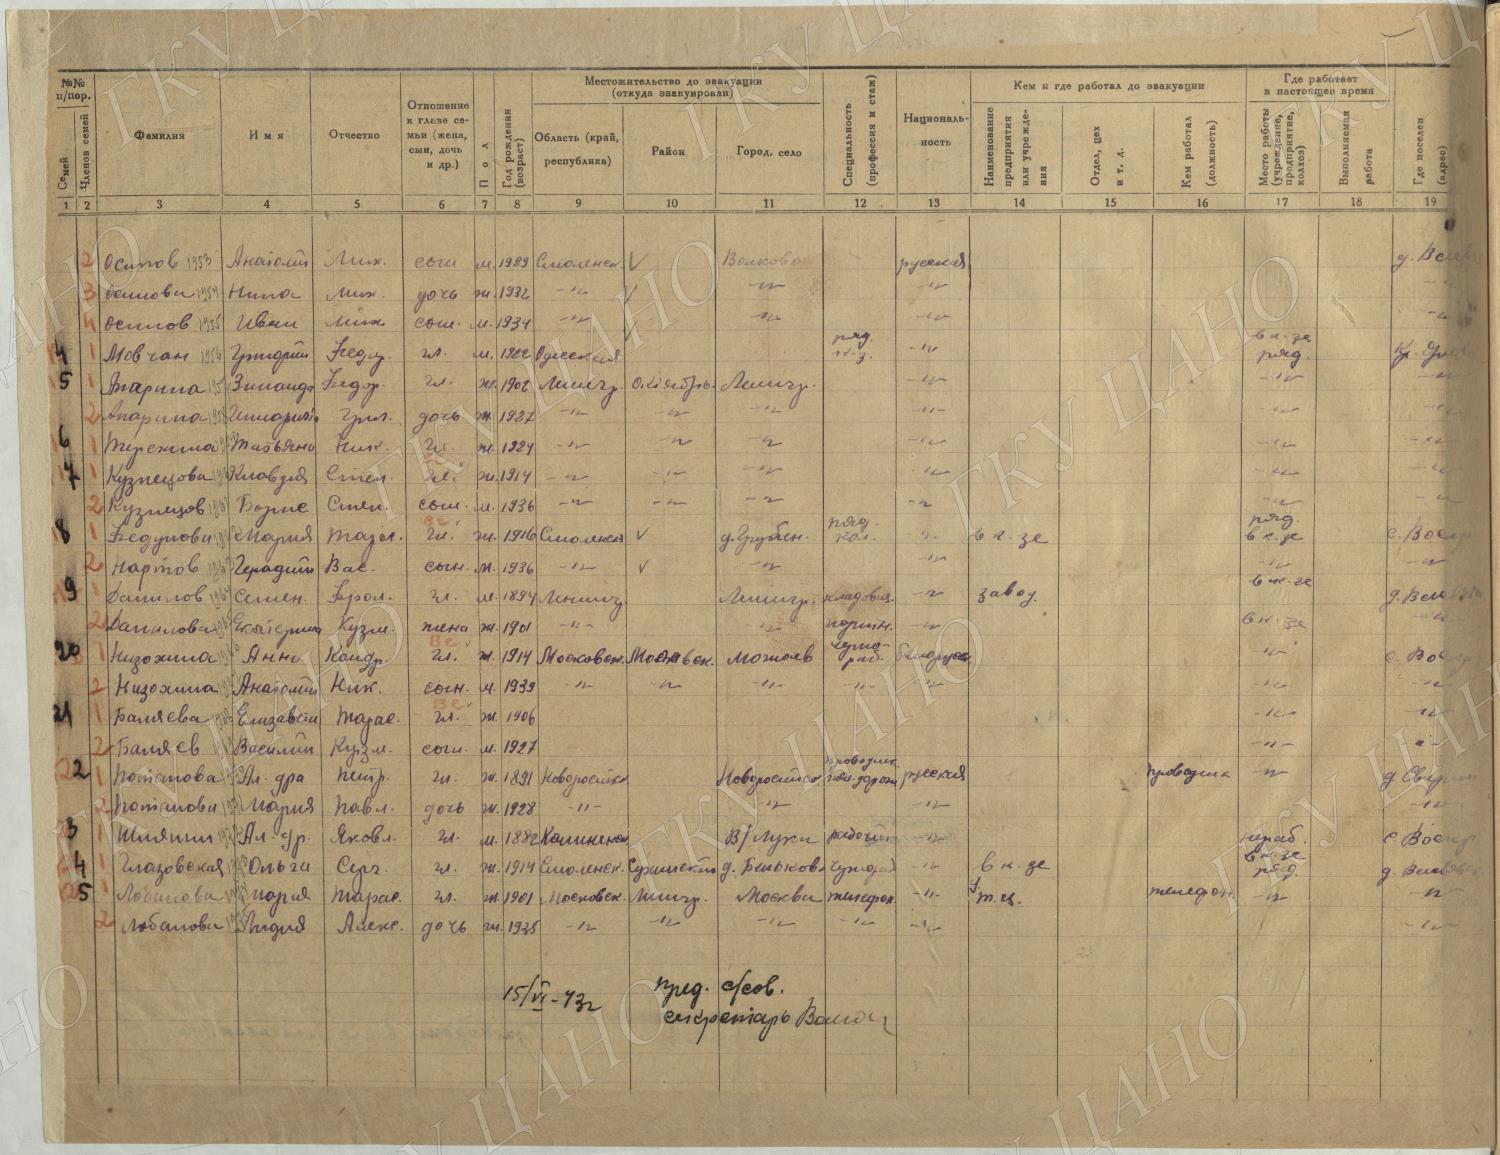 №№ п/пор.
Семей
Членов семей
Фамилия
Имя
Отчество
Отношение к главе семьи (жена, сын, дочь и др.)
Пол
Год рождения (возраст)
Местожительство до эвакуации (откуда эвакуирован)
Область (край, республика)
Район
Город, село
Специальность (профессия и стаж)
Националь-
ность
Кем и где работал до эвакуации
Наименование предприятия или учреждения
Отдел, цех и т. д.
Кем работал (должность)
Где работает в настоящее время
Место работы (учреждение, предприятие, колхоз)
Выполняемая работа
Где поселен (адрес)
1 2 3 4 5 6 7 8 9 10 11 12 13 14 15 16 17 18 19
2 Осипов Анатолий Мих. сын м. 1929 Смоленск. Волково русская
3 Осипова Нина Мих. дочь ж. 1932 -"- -"- -"-
4 Осипов Иван Мих. сын. м. 1934 -"- -"- -"-
4 1 Мовчан Григорий Федор. гл. м. 1922 Одесская ряд. к-з. -"- в к-зе ряд.
5 1 Зинаида Федор. гл. ж. 1902 Ленингр. Октябрь. Ленингр. -"- -"-
2 дочь ж. 1927 -"- -"- -"- -"- -"-
6 1 Терехина Татьяна Ник. гл. ж. 1924 -"- -"- -"- -"- -"-
7 1 Кузнецова Клавдия Степ. гл. ж. 1914 -"- -"- -"- -"- -"-
2 Кузнецов Борис Степ. сын. м. 1936 -"- -"- -"- -"- -"-
8 1 Федулова Мария гл. ж. 1916 Смоленск ряд. кол. -"- в к-зе ряд. в к-зе
2 Нартов Генадий Вас. сын. м. 1936 -"- -"- -"- -"-
9 1 Данилов Семен. Фрол. гл. м. 1894 Ленингр. Ленингр. кладовщ. -"- завод. в к-зе
2 Данилова Екатерина Кузм. жена ж. 1901 -"- -"- портн. -"- в к-зе
20 1 Низохина Анна Кондр. гл. ж. 1914 Московск. Московск. Можаев черно-раб. белорусс -"-
2 Низохина Анатолий Ник. сын. м. 1939 -"- -"- -"- -"- -"- -"-
21 1 Баляева Елизавета Тарас. гл. ж. 1906 -"-
2 Баляев Василий Кузм. сын. м. 1927 -"-
22 1 Потапова Ал-дра Петр. гл. ж. 1891 Новоросийск Новоросийск проводник жел-дорож русская проводник -"-
2 Потапова Мария Павл. дочь ж. 1928 -"- -"- -"-
3 1 Шляпин Ал-др. Яковл. гл. м. 1882 Калининск В/Луки рабочий -"- нераб.
4 1 Глазовская Ольга Серг. гл. ж. 1914 Смоленск. -"- в к-зе в к-зе ряд.
5 1 Лобанова Мария Тарас. гл. ж. 1901 Московск. Москва телефон. -"- телефон. -"-
2 Лобанова Лидия Алекс. дочь ж. 1925 -"- -"- -"- -"- -"-
15/VI-43г пред. с/сов.
секретарь
ГКУ ЦАНО